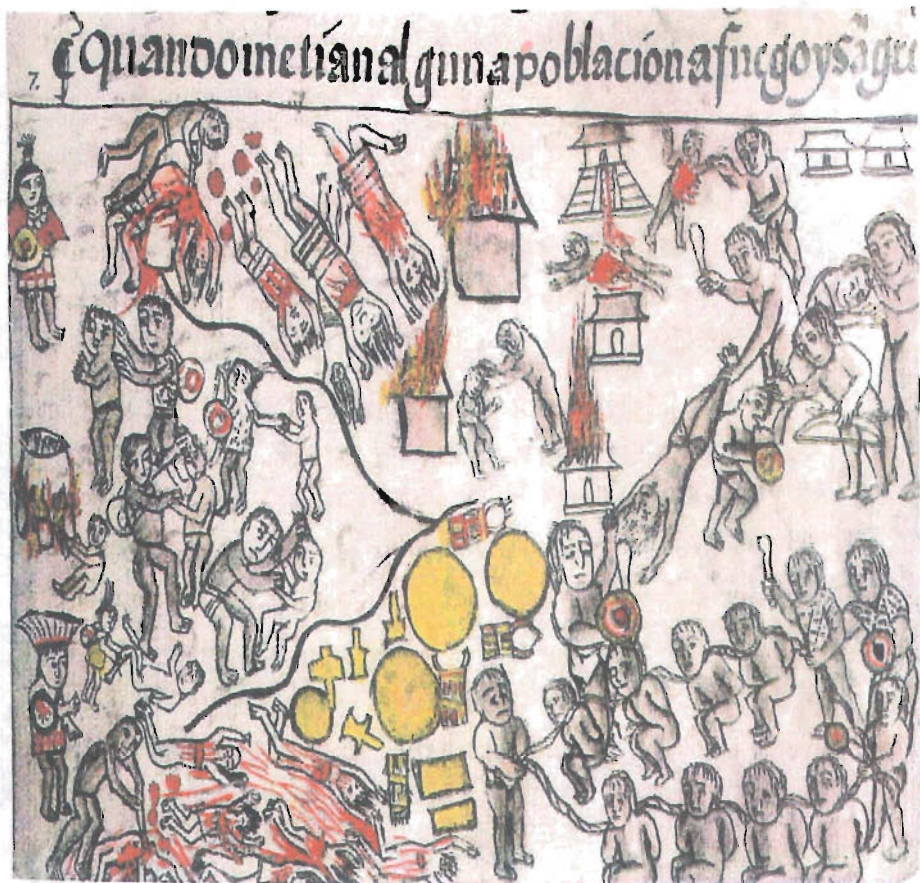 7.
¶ Quando metían alguna población a fuego y sãgre